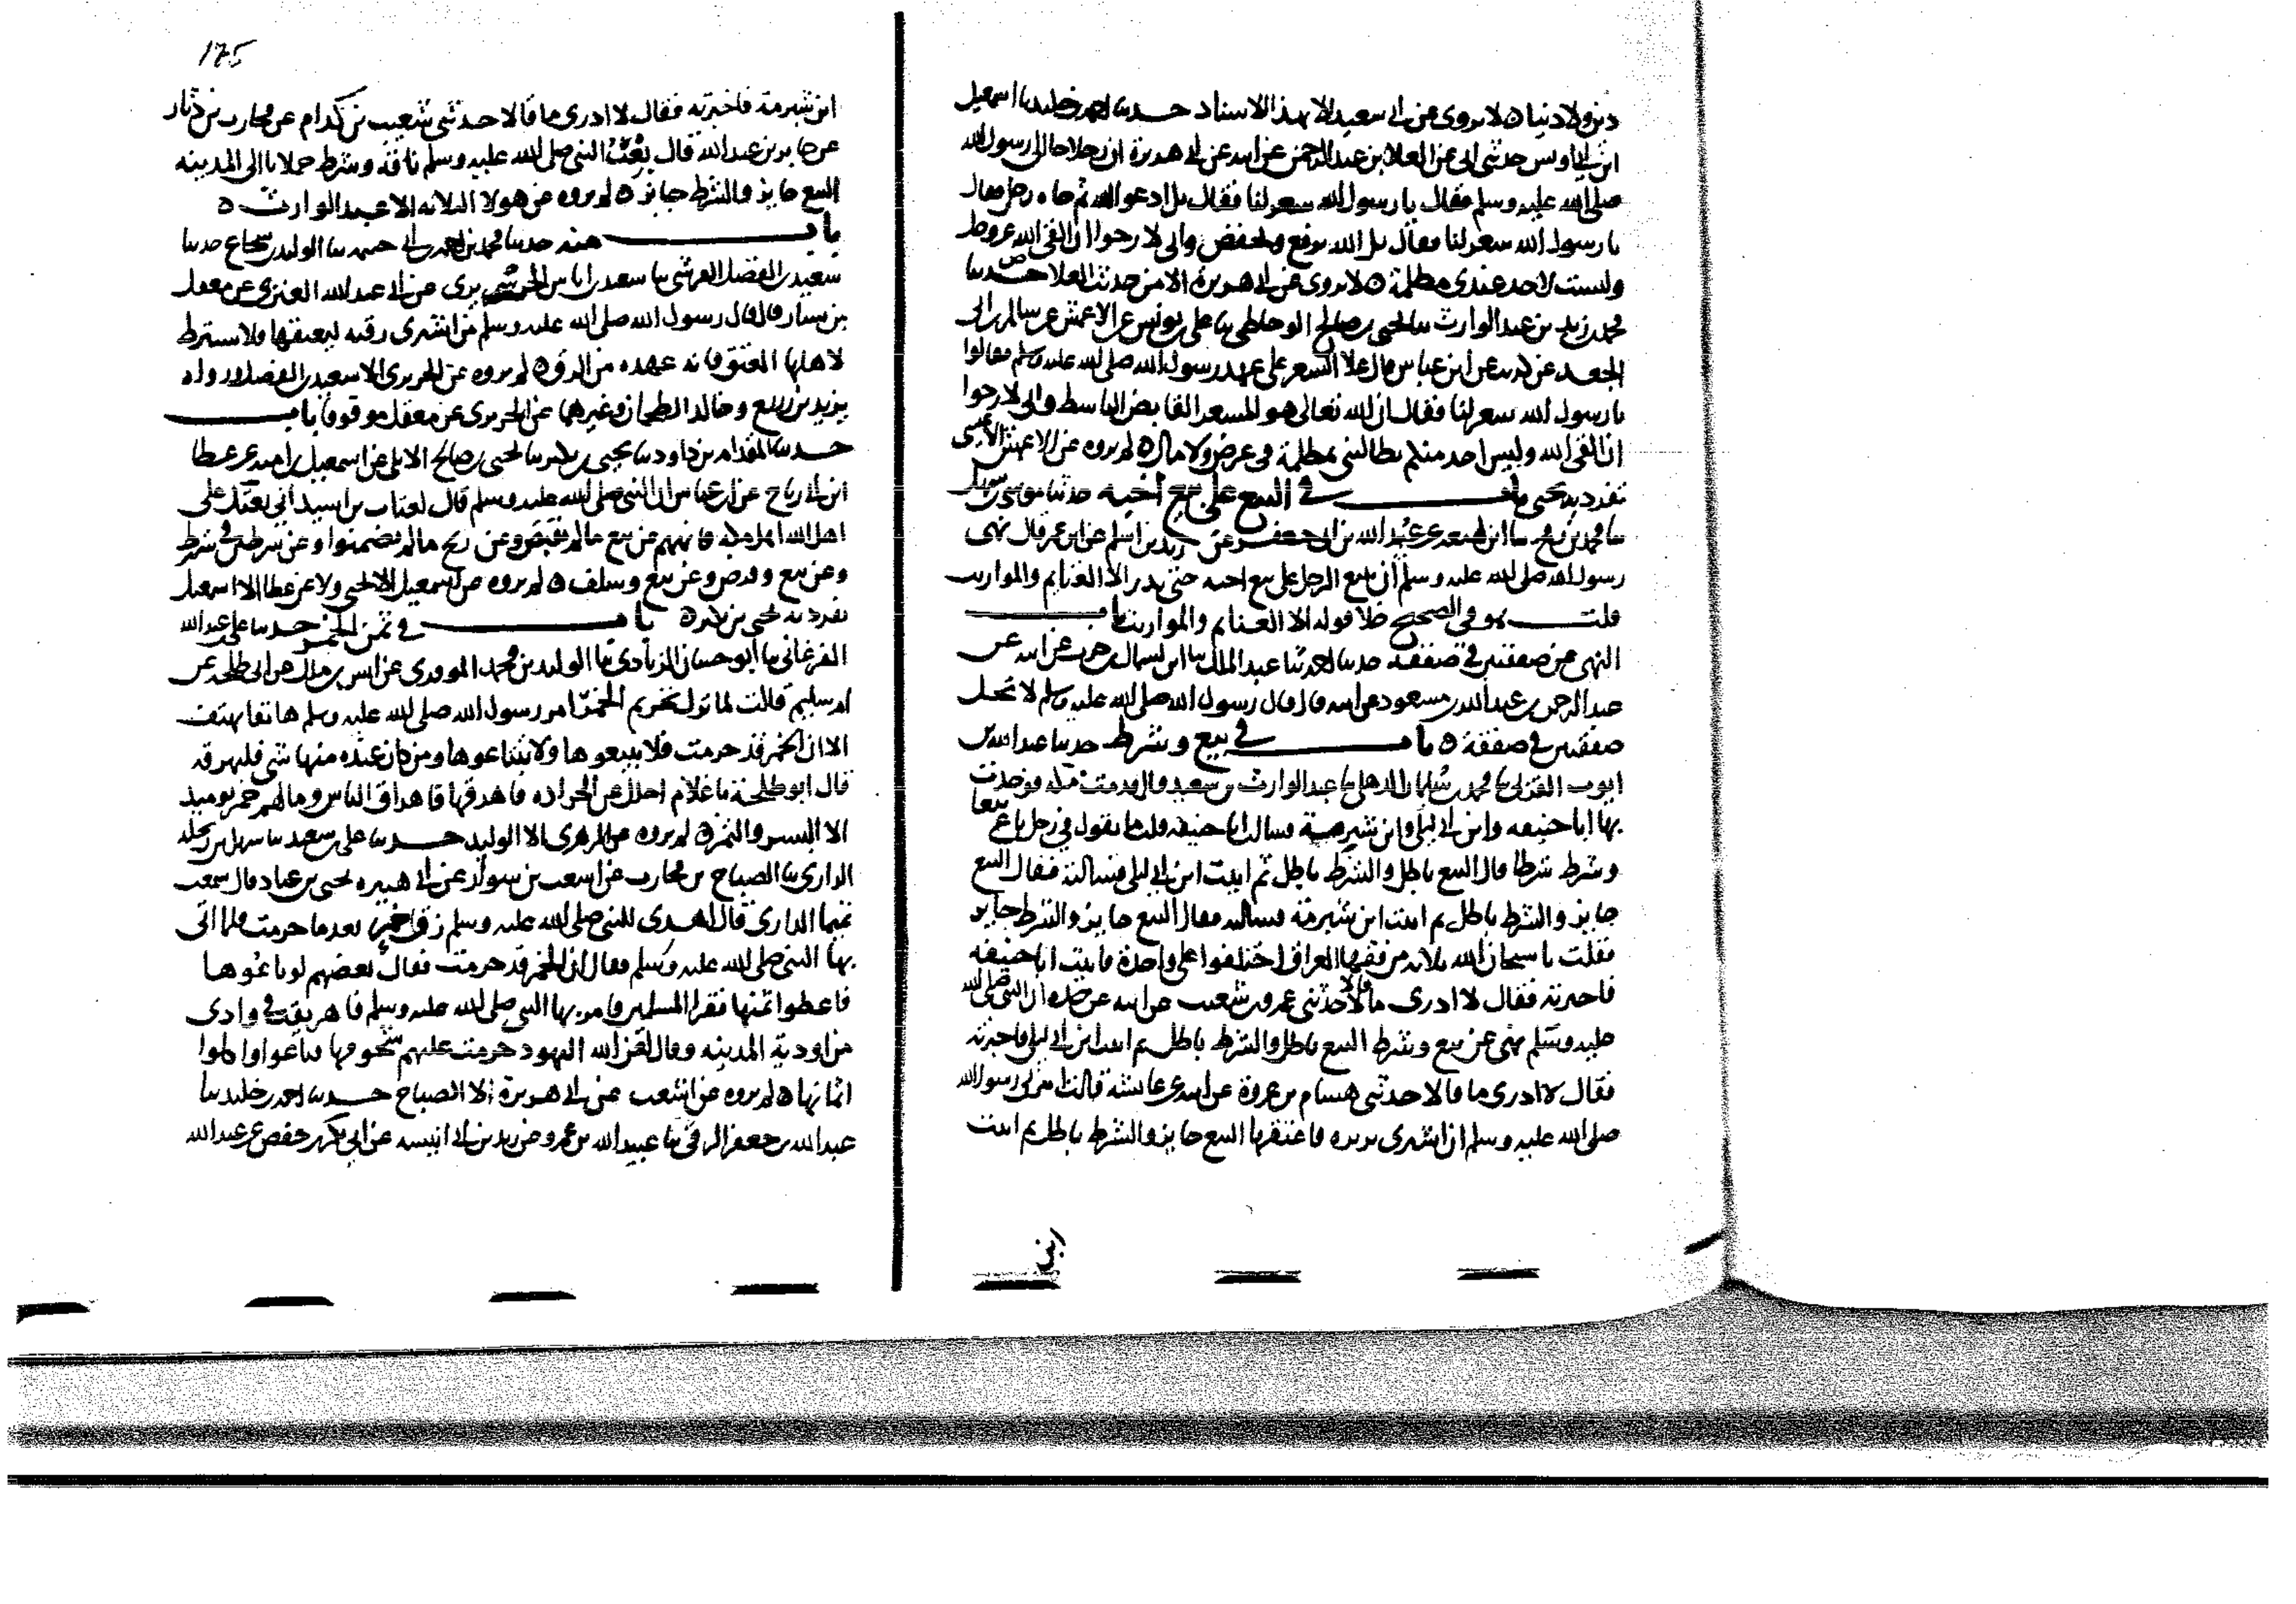 دين ولا دنيا ه لا يروى عن أبي سعيد الا بهذا الاسناد حدثنا احمد بن خليد ثنا اسمعيل
ابن أبي اويس حدثني أبي عن العلا بن عبد الرحمن عن ابيه عن أبي هريرة ان رجلا جا الى رسول الله
صلى الله عليه وسلم فقال يا رسول الله سعر لنا فقال بل ادعو الله ثم جاه رجل فقال
يا رسول الله سعر لنا فقال بل الله يرفع ويخفض واني لارجوا ان القى الله عز وجل
وليست لاحد عندي مظلمة ه لا يروى عن أبي هريرة الا من حديث العلا حدثنا
محمد بن يزيد بن عبد الوارث ثنا يحيى بن صالح الوحاظي ثنا علي بن يونس عن الاعمش عن سالم بن أبي
الجعد عن كريب عن ابن عباس قال غلا السعر على عهد رسول الله صلى الله عليه وسلم فقالوا
يا رسول الله سعر لنا فقال ان الله تعالى هو المسعر القابض الباسط واني لارجوا
ان القى الله وليس احد منكم يطالبني بمظلمة في عرض ولا مال ه لم يروه عن الاعمش الا عيسى
تفرد به يحيى باب في البيع على بيع اخيه حدثنا موسى بن سهل
ثنا محمد بن رمح ثنا ابن لهيعه عن عبيد الله بن أبي جعفر عن زيد بن اسلم عن ابن عمر قال نهى
رسول الله صلى الله عليه وسلم ان يبيع الرجل على بيع اخيه حتى يذر الا الغنايم والمواريث
قلت هو في الصحيح خلا قوله الا الغنايم والمواريث باب
النهي عن صفقتين في صفقة حدثنا احمد ثنا عبد الملك ثنا ابن سماك بن حرب عن ابيه عن
عبد الرحمن بن عبد الله بن مسعود عن ابيه قال قال رسول الله صلى الله عليه وسلم لا تحل
صفقتين في صفقة ه باب في بيع وشرط حدثنا عبد الله بن
ايوب القربي ثنا محمد بن سليمان الذهلي ثنا عبد الوارث بن سعيد قال قدمت مكه فوجدت
بها ابا حنيفه وابن أبي ليلى وابن شبرمة فسالت ابا حنيفه قلت ما تقول في رجل باع بيعا
وشرط شرطا قال البيع باطل والشرط باطل ثم اتيت ابن أبي ليلى فسالته فقال البيع
جايز والشرط باطل ثم اتيت ابن شبرمة فسالته فقال البيع جايز والشرط جايز
فقلت يا سبحان الله ثلاثه من فقها العراق اختلفوا على واحدة فاتيت ابا حنيفه
فاخبرته فقال لا ادري ما قالا حدثني عمرو بن شعيب عن ابيه عن جده ان النبي صلى الله
عليه وسلم نهى عن بيع وشرط البيع باطل والشرط باطل ثم اتيت ابن أبي ليلى فاخبرته
فقال لا ادري ما قالا حدثني هشام بن عروة عن ابيه عن عايشة قالت امرني رسول الله
صلى الله عليه وسلم ان اشتري بريره فاعتقها البيع جايز والشرط باطل ثم اتيت
ابن
175
ابن شبرمة فاخبرته فقال لا ادري ما قالا حدثني شعيب بن كدام عن محارب بن دثار
عن جابر بن عبد الله قال بعت النبي صلى الله عليه وسلم ناقة وشرط حملانا الى المدينه
البيع جايز والشرط جايز ه لم يروه عن هولا الثلاثه الا عبد الوارث ه
باب منه حدثنا محمد بن احمد بن أبي خيثمه ثنا الوليد بن شجاع حدثنا
سعيد بن الفضل القرشي ثنا سعيد بن اياس الجريري عن أبي عبد الله العنزي عن معقل
بن يسار قال قال رسول الله صلى الله عليه وسلم من اشترى رقبه ليعتقها فلا يشترط
لاهلها العتق فانه عهده من الرق ه لم يروه عن الجريري الا سعيد بن الفضل ورواه
يزيد بن زريع وخالد الطحان وغيرهما عن الجريري عن معقل موقوفا باب
حدثنا المقدام بن داود ثنا يحيى بن بكير ثنا يحيى بن صالح الايلي عن اسمعيل بن اميه عن عطا
ابن أبي رباح عن ابن عباس ان النبي صلى الله عليه وسلم قال لعتاب بن اسيد اني بعثتك على
اهل الله اهل مكه فانههم عن بيع ما لم يقبض وعن ربح ما لم يضمنوا وعن شرطين في شرط
وعن بيع وقرض وعن بيع وسلف ه لم يروه عن اسمعيل الا يحيى ولا عن عطا الا اسمعيل
تفرد به يحيى بن بكير ه باب في ثمن الخمر حدثنا علي بن عبد الله
الفرغاني ثنا ابو حسان الزيادي ثنا الوليد بن محمد الموقري عن انس بن مالك عن أبي طلحه عن
ام سليم قالت لما نزل تحريم الخمر امر رسول الله صلى الله عليه وسلم هاتفا يهتف
الا ان الخمر قد حرمت فلا تبيعوها ولا تبتاعوها ومن كان عنده منها شي فليهرقه
قال ابو طلحة يا غلام احلل عزالى المزاده فاهرقها فاهراق الناس وما لهم خمر يوميذ
الا البسر والتمر ه لم يروه عن الزهري الا الوليد حدثنا علي بن سعيد ثنا سهل بن زنجله
الرازي ثنا الصباح بن محارب عن اشعث بن سوار عن أبي هبيره يحيى بن عباد قال سمعت
تميما الداري قال اهدي للنبي صلى الله عليه وسلم زق خمر بعد ما حرمت فلما اتى
بها النبي صلى الله عليه وسلم فقال ان الخمر قد حرمت فقال بعضهم لو باعوها
فاعطوا ثمنها فقرا المسلمين فامر بها النبي صلى الله عليه وسلم فاهريقت في وادي
من اودية المدينه وقال لعن الله اليهود حرمت عليهم شحومها فباعوا واكلوا
اثمانها ه لم يروه عن اشعث عن أبي هبيرة الا الصباح حدثنا احمد بن خليد ثنا
عبد الله بن جعفر الرقي ثنا عبيد الله بن عمرو عن زيد بن أبي انيسه عن أبي بكر بن حفص عن عبد الله